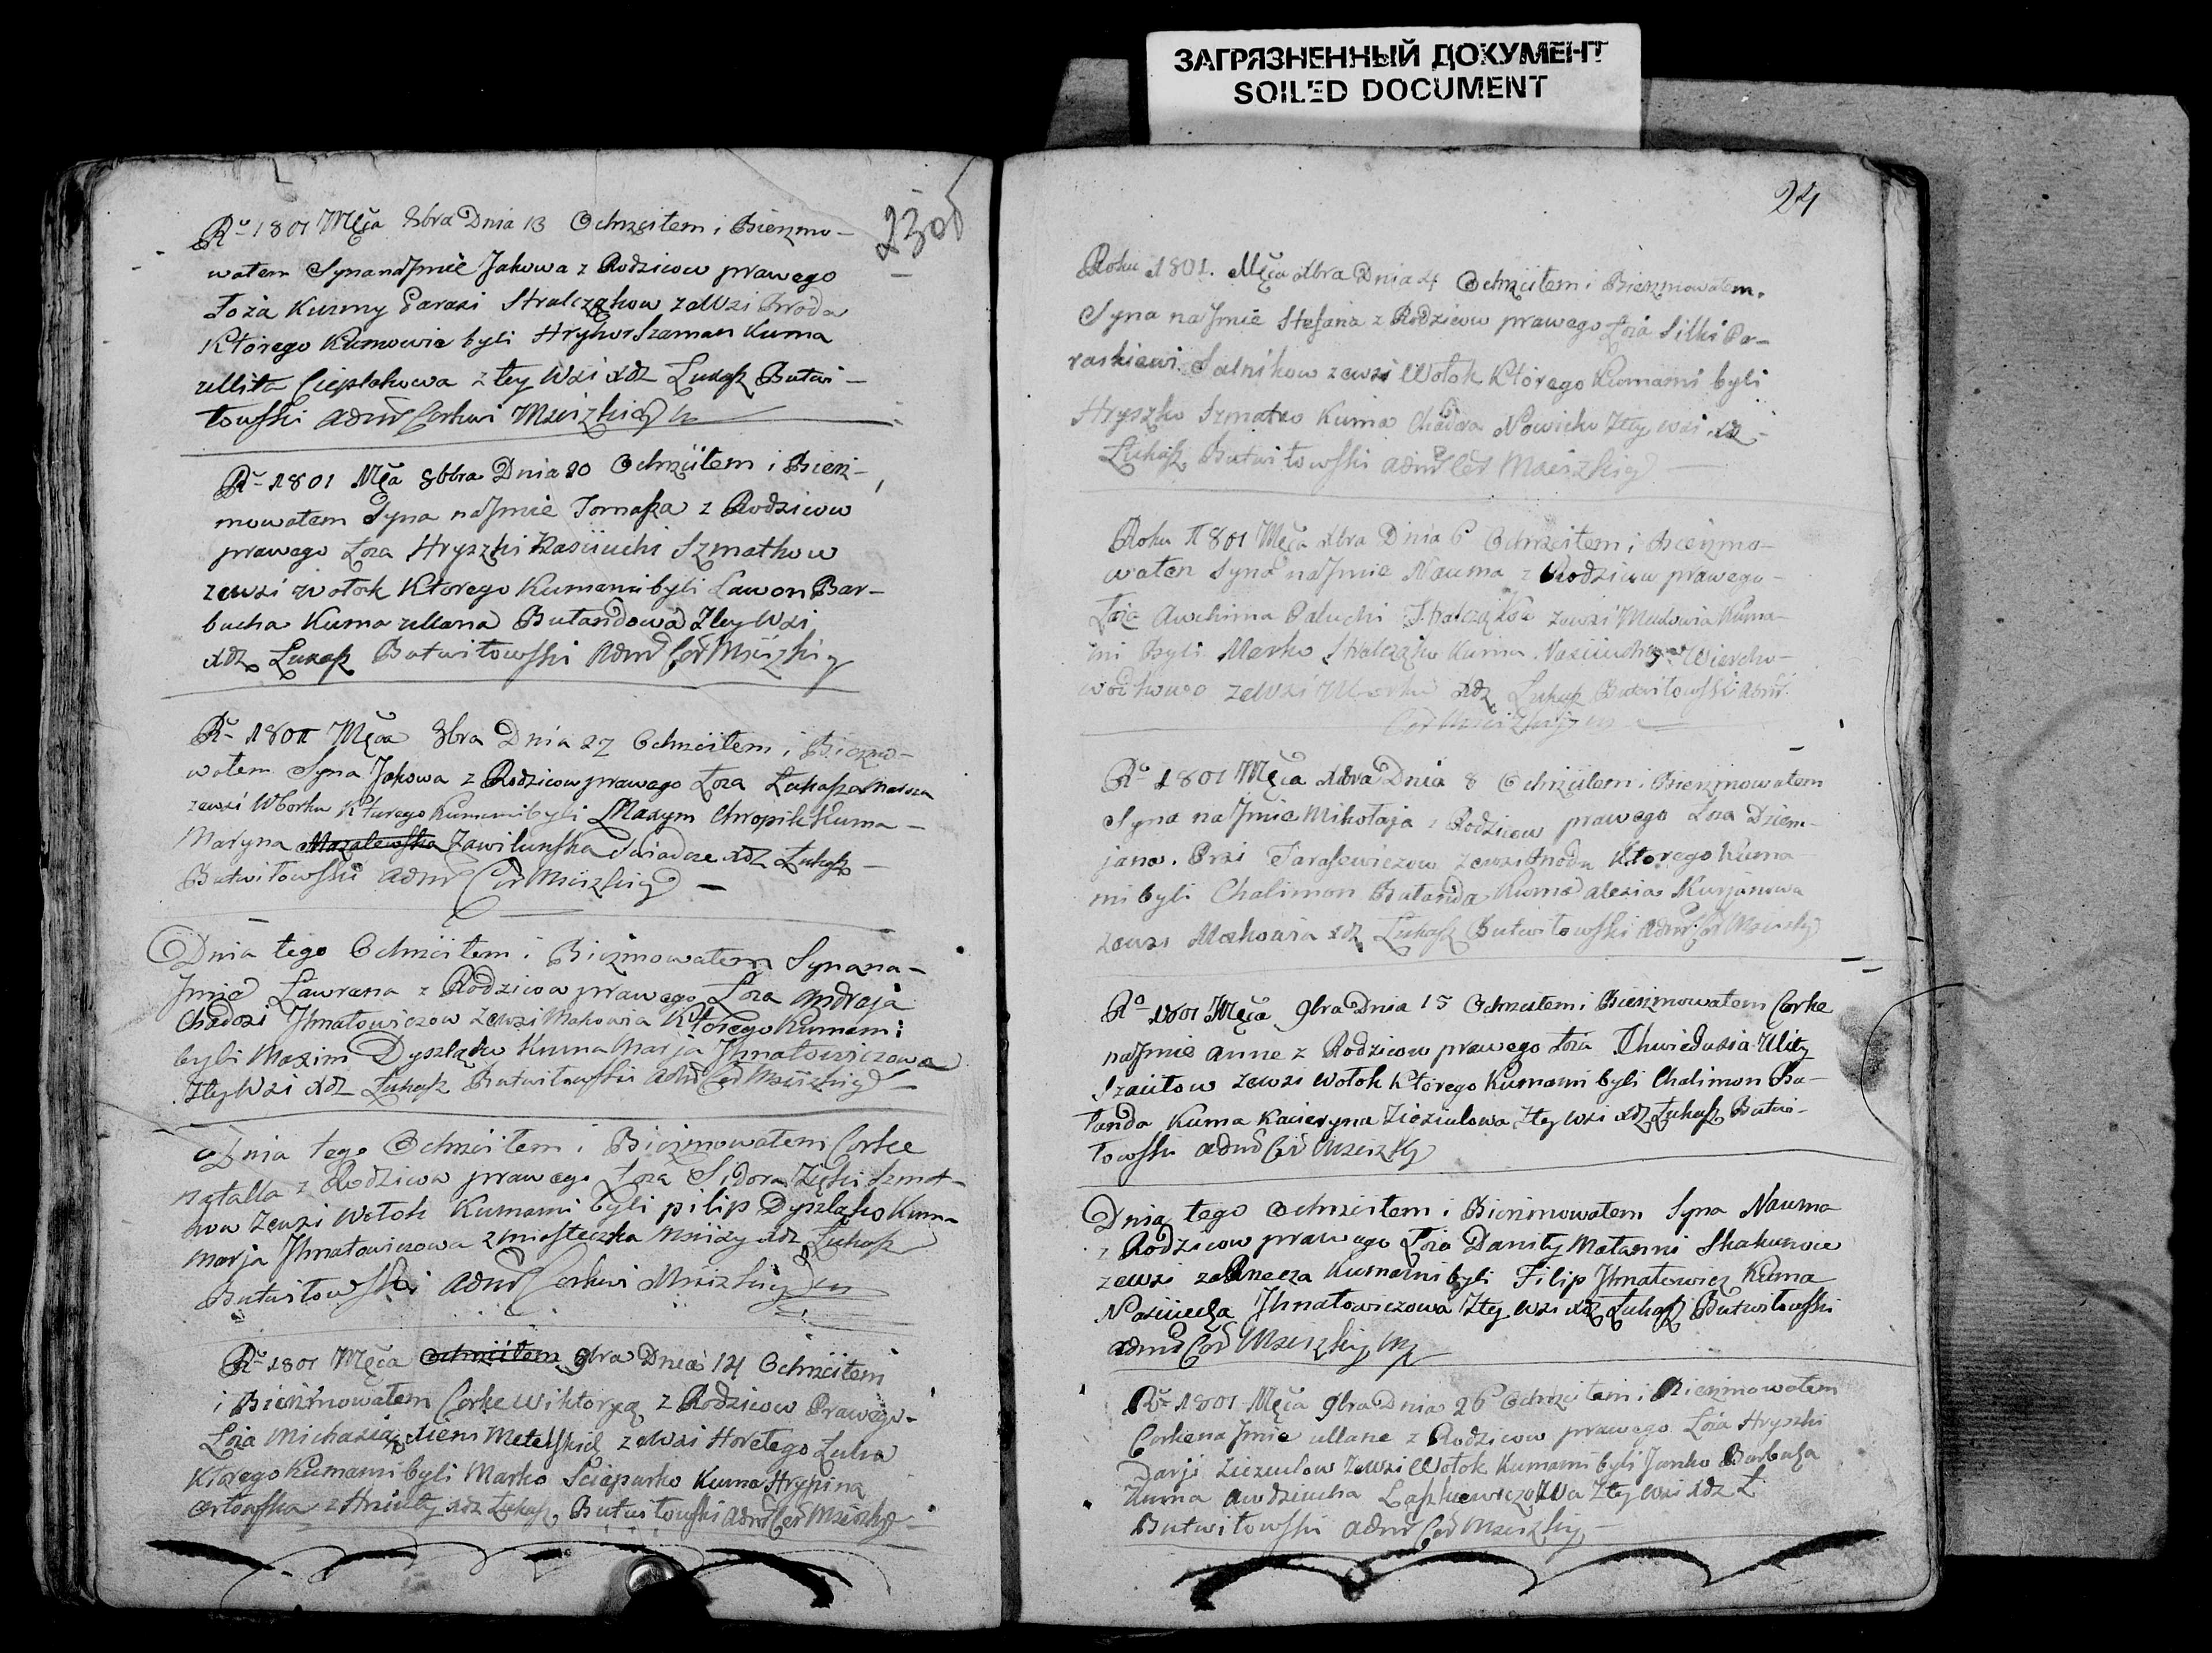 ЗАГРЯЗНЕННЫЙ ДОКУМЕНТ
SOILED DOCUMENT
23об
Rᵒ 1801 Męca 8bra Dnia 13 Ochrzciłem i Bierzmo-
wałem Syna na Jmie Jakowa z Rodzicow prawego
Łoża Kuzmy Parasi Stralcząkow ze Wsi Broda
Ktorego Kumowie byli Hryhor Szaman Kuma
Ullita Cieplakowa z tey Wsi xdz Łukasz Butwi-
łowski Admr Cerkwi Mscizkiey
Rᵒ 1801 Męca 8bra Dnia 20 Ochrzciłem i Bierz-
mowałem Syna na Jmie Tomasza z Rodzicow
prawego Łoza Hryszki Nasciuchi Szmatkow
ze wsi Wołok Ktorego Kumami byli Lawon Bar-
bucha Kuma Ullana Butandowa Ztey Wsi
xdz Łukasz Butwiłowski Admr Cer Mscizkiey
Rᵒ 1801 Męca 8bra Dnia 27 Ochrzciłem i Bierzmo-
wałem Syna Jakowa z Rodzicow prawego Łoza Łukasza
ze wsi Wborku Ktorego Kumami byli Maxym Chropik Kuma
Maryna Mazalewska Zawilunska Swiadcze xdz Łukasz
Butwiłowski Admr Cer Mscizkiey
Dnia tego Ochrzciłem i Bierzmowałem Syna na
Jmie Ławrena z Rodzicow prawego Łoza Andreja
Chadosi Jhnatowiczow ze wsi Makowia Ktorego Kumami
byli Maxim Dyszlątko Kuma Marja Jhnatowiczowa
Ztey Wsi xdz Łukasz Butwiłowski Admr Cer Mscizkiey
Dnia tego Ochrzciłem i Bierzmowałem Corke
Natalla z Rodzicow prawego Łoza Sidora Zięki Szmat-
kow Ze wsi Wołok Kumami byli pilip Dyszlątko Kuma
Marja Jhnatowiczowa z miasteczka Mscizy xdz Łukasz
Butwiłowski Admr Cerkwi Mscizkiey
Rᵒ 1801 Męca Ochrzciłem 9bra Dnia 14 Ochrzciłem
i Bierzmowałem Corke Wiktoryą z Rodzicow Prawego
Łoża Michasia Metelskich ze Wsi Horełego Ługa
Ktorego Kumami byli Marko Sciapurko Kuma Hrypina
Orłowska z xdz Łukasz Butwiłowski Admr Cer Mscizkiey
24
Roku 1801. Męca Xbra Dnia 4 Ochrzciłem i Bierzmowałem
Syna na Jmie Stefana z Rodzicow prawego Łoża Silki Pa-
raskiewi Salnikow ze wsi Wołok Ktorego Kumami byli
Hryszko Szmatko Kuma Chadora Nowicko Ztey wsi xdz
Łukasz Butwiłowski Admr Cer Mscizkiey
Roku 1801 Męca Xbra Dnia 6 Ochrzciłem i Bierzmo-
wałem Syna na Jmie Nauma z Rodzicow prawego
Łoża Awchima Paluchi ze wsi Makowia Kuma-
mi Byli Marko Stralczątko Kuma Nasciucha Wiercho-
ze Wsi xdz Łukasz Butwiłowski Admr
Cer Mscizkiey
Rᵒ 1801 Męca Xbra Dnia 8 Ochrzciłem i Bierzmowałem
Syna na Jmie Mikołaja z Rodzicow prawego Łoza Dziem-
jana. Tarasewiczow ze wsi Broda Ktorego Kuma-
mi byli Chalimon Butanda Kuma Alexia Kurjanowa
ze wsi Makowia xdz Łukasz Butwiłowski Admr Cer Mscizkiey
Rᵒ 1801 Męca 9bra Dnia 15 Ochrzciłem i Bierzmowałem Corke
na Jmie Anne z Rodzicow prawego Łoża Chwiedusia Ulity
Szautow ze wsi Wołok Ktorego Kumami byli Chalimon Bu-
tanda Kuma Kacieryna Zioziulowa Ztey wsi xdz Łukasz Butwi-
łowski Admr Cer Mscizkiey
Dnia tego Ochrzciłem i Bierzmowałem Syna Nauma
z Rodzicow prawego Łoża Daniły Matanni Skakunow
ze wsi Kumami byli Filip Jhnatowicz Kuma
Nasciucha Jhnatowiczowa Ztey wsi xdz Łukasz Butwiłowski
Admr Cer Mscizkiey
Rᵒ 1801 Męca 9bra Dnia 26 Ochrzciłem i Bierzmowałem
Corke na Jmie Ullane z Rodzicow prawego Łoża Hryszki
Darji Ziezulow Ze wsi Wołok Kumami byli Janko Barbuha
Kuma Awdziucha Łaszkiewiczowa Ztey wsi xdz Ł
Butwiłowski Admr Cer Mscizkiey